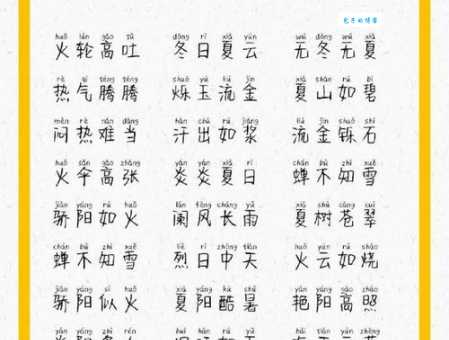 huǒ lún gāo tǔ dōng rì xià yún wú dōng wú xià
火轮高吐 冬日夏云 无冬无夏
rè qì téng téng shuò yù liú jīn xià shān rú bì
热气腾腾 烁玉流金 夏山如碧
mēn rè nán dāng hàn chū rú jiāng liú jīn shuò shí
闷热难当 汗出如浆 流金铄石
huǒ sǎn gāo zhāng yán yán xià rì chán bù zhī xuě
火伞高张 炎炎夏日 蝉不知雪
jiāo yáng rú huǒ lán fēng cháng yǔ xià shù cāng cuì
骄阳如火 阑风长雨 夏树苍翠
chán bù zhī xuě liè rì zhōng tiān huǒ yún rú shāo
蝉不知雪 烈日中天 火云如烧
jiāo yáng sì huǒ xià yáng kù shǔ yàn yáng gāo zhào
骄阳似火 夏阳酷暑 艳阳高照